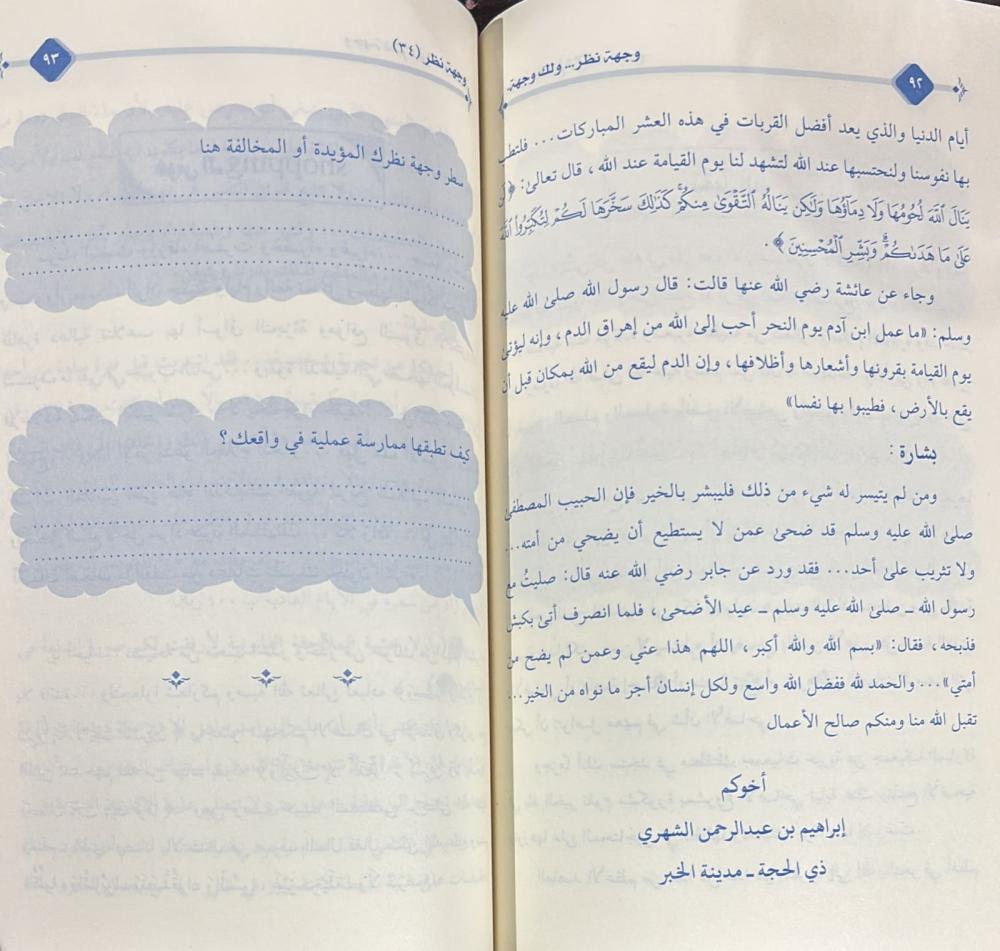 وجهة نظر... ولك وجهة
٩٢
أيام الدنيا والذي يعد أفضل القربات في هذه العشر المباركات... فلتطب
بها نفوسنا ولنحتسبها عند الله لتشهد لنا يوم القيامة عند الله، قال تعالى: ﴿لَن
يَنَالَ ٱللَّهَ لُحُومُهَا وَلَا دِمَآؤُهَا وَلَٰكِن يَنَالُهُ ٱلتَّقْوَىٰ مِنكُمْ ۚ كَذَٰلِكَ سَخَّرَهَا لَكُمْ لِتُكَبِّرُوا۟ ٱللَّهَ
عَلَىٰ مَا هَدَىٰكُمْ ۗ وَبَشِّرِ ٱلْمُحْسِنِينَ﴾.
وجاء عن عائشة رضي الله عنها قالت: قال رسول الله صلى الله عليه
وسلم: «ما عمل ابن آدم يوم النحر أحب إلى الله من إهراق الدم، وإنه ليؤتى
يوم القيامة بقرونها وأشعارها وأظلافها، وإن الدم ليقع من الله بمكان قبل أن
يقع بالأرض، فطيبوا بها نفسا»
بشارة:
ومن لم يتيسر له شيء من ذلك فليبشر بالخير فإن الحبيب المصطفى
صلى الله عليه وسلم قد ضحى عمن لا يستطيع أن يضحي من أمته...
ولا تثريب على أحد... فقد ورد عن جابر رضي الله عنه قال: صليتُ مع
رسول الله ـ صلى الله عليه وسلم ـ عيد الأضحى، فلما انصرف أتى بكبش
فذبحه، فقال: «بسم الله والله أكبر، اللهم هذا عني وعمن لم يضح من
أمتي»... والحمد لله ففضل الله واسع ولكل إنسان أجر ما نواه من الخير...
تقبل الله منا ومنكم صالح الأعمال
أخوكم
إبراهيم بن عبدالرحمن الشهري
ذي الحجة ـ مدينة الخبر
وجهة نظر (٣٤)
٩٣
سطر وجهة نظرك المؤيدة أو المخالفة هنا
كيف نطبقها ممارسة عملية في واقعك؟